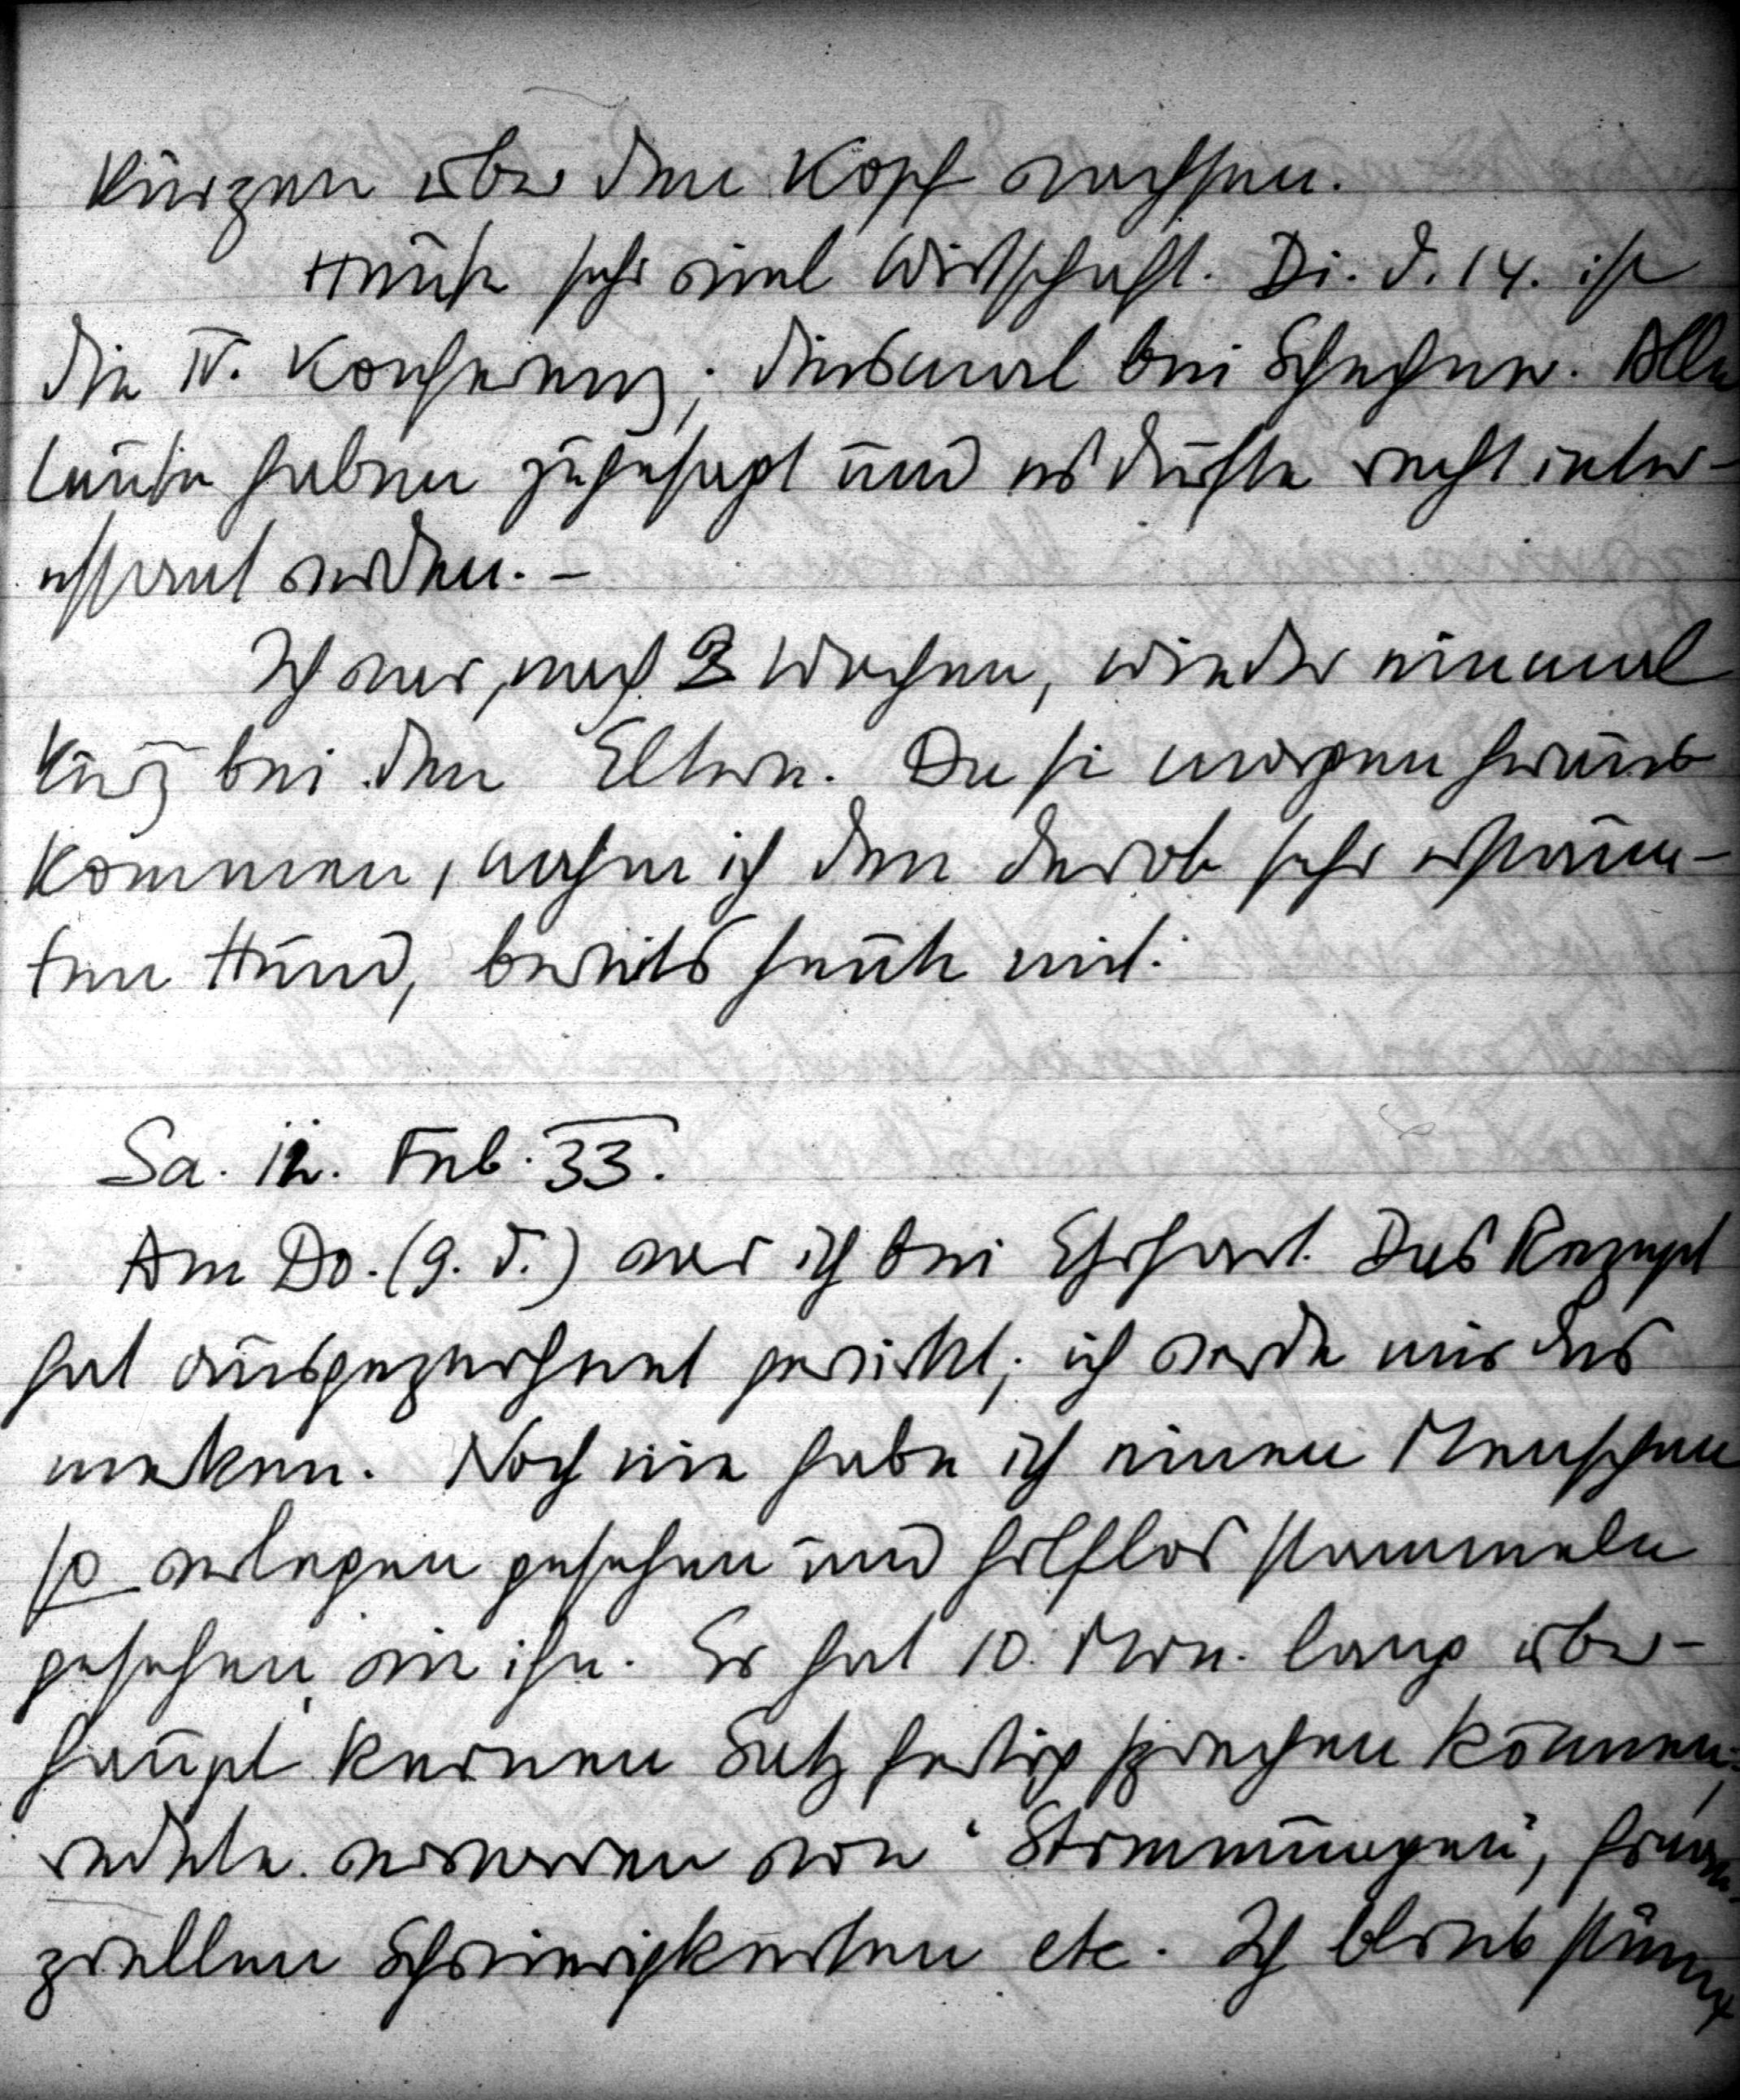 kurzem über den Kopf wachsen.
Heute sehr viel Wirtschaft. Di. d. 14. ist
die IV. Konferenz; diesmal bei Schachner. Alle
Leute haben zugesagt und es dürfte recht inter-
essant werden. –
Ich war, nach 3 Wochen, wieder einmal
kurz bei den Eltern. Da sie morgen heraus
kommen, nahm ich den darob sehr erstaun-
ten Hund, bereits heute mit.
Sa. 12. Feb. 33.
Am Do. (9. d.) war ich bei Ehrhart. Das Rezept
hat ausgezeichnet gewirkt; ich werde mir das
merken. Noch nie habe ich einen Menschen
so verlegen gesehen und hilflos stammeln
gesehen wie ihn. Er hat 10 Min. lang über-
haupt keinen Satz fertig sprechen können;
redete verworren von "Stimmungen", finan-
ziellen Schwierigkeiten etc. Ich blieb stumm